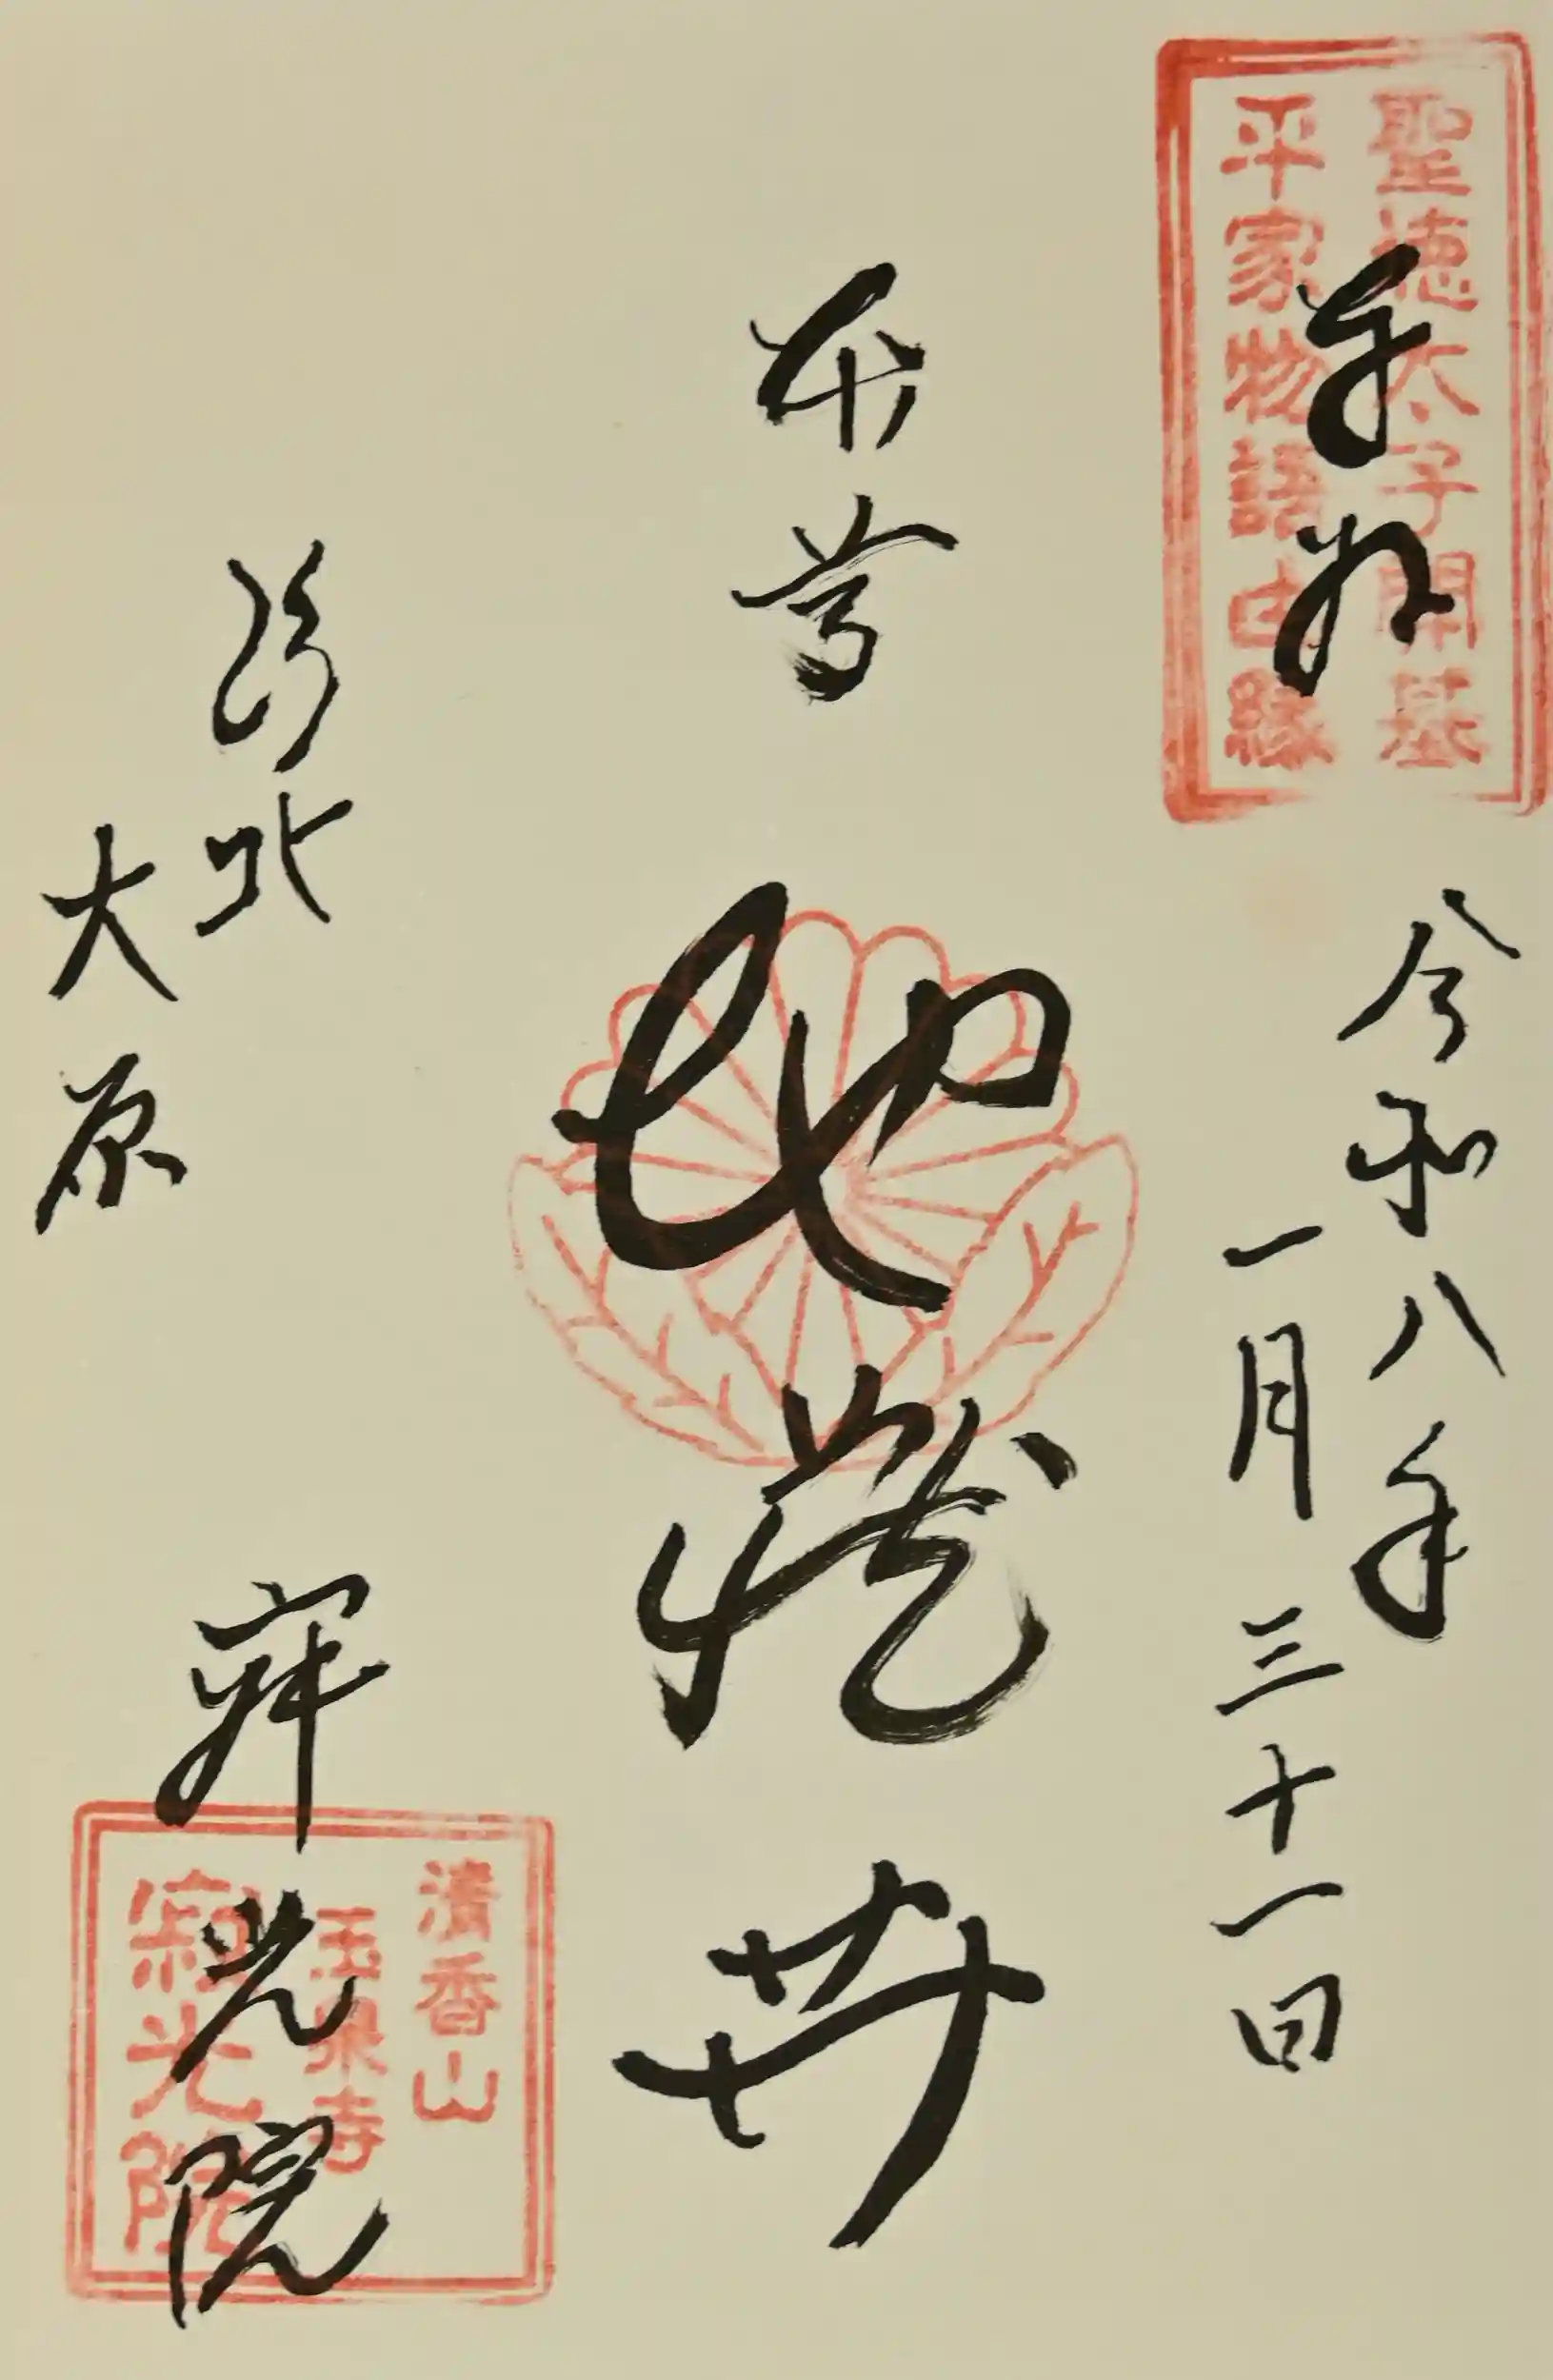 聖徳太子開基
平家物語由縁
奉拝
令和八年
一月三十一日
本尊
地蔵𦬇
洛北
大原
寂光院
清香山
玉泉寺
寂光院